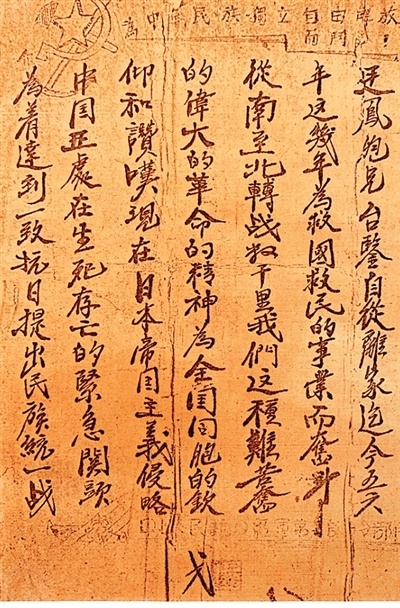 鳳魨兄台鑒自從離家迄今五六
年这幾年為救國救民的事業而奮鬥
從南至北轉战数千里我們这種艱苦奮
的偉大的革命的精神為全国同胞的欽
仰和讚嘆現在日本帝国主義侵略
中国正處在生死存亡的緊急関頭
為着達到一致抗日提出民族統一战